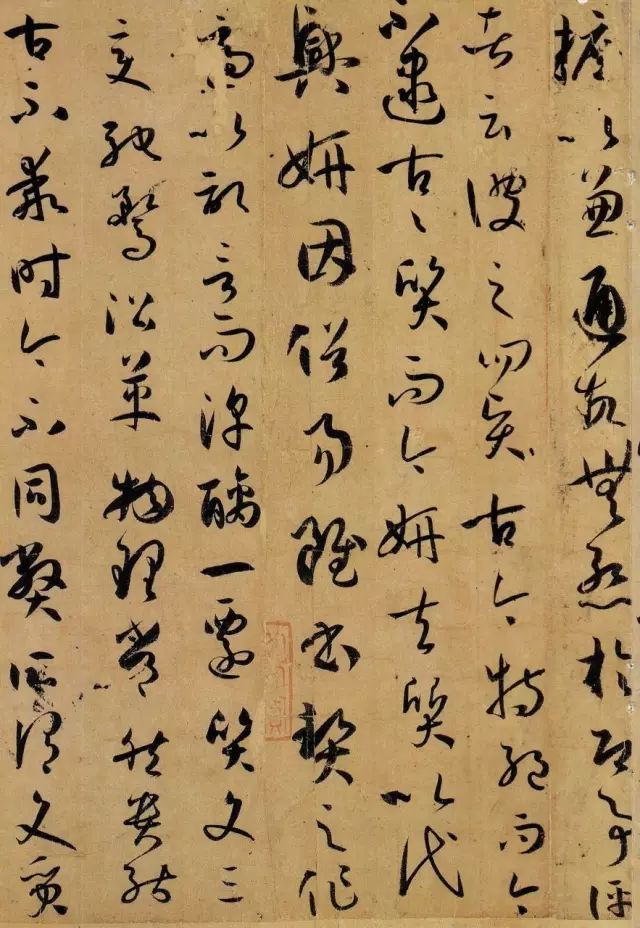 摭以兼通故無慙於即事評
者云彼之四賢古今特絕而今
不逮古〻質而今妍夫質以代
興妍因俗易雖書契之作
適以記言而淳醨一遷質文三
變馳騖沿革物理常然貴能
古不乖時今不同弊所謂文質